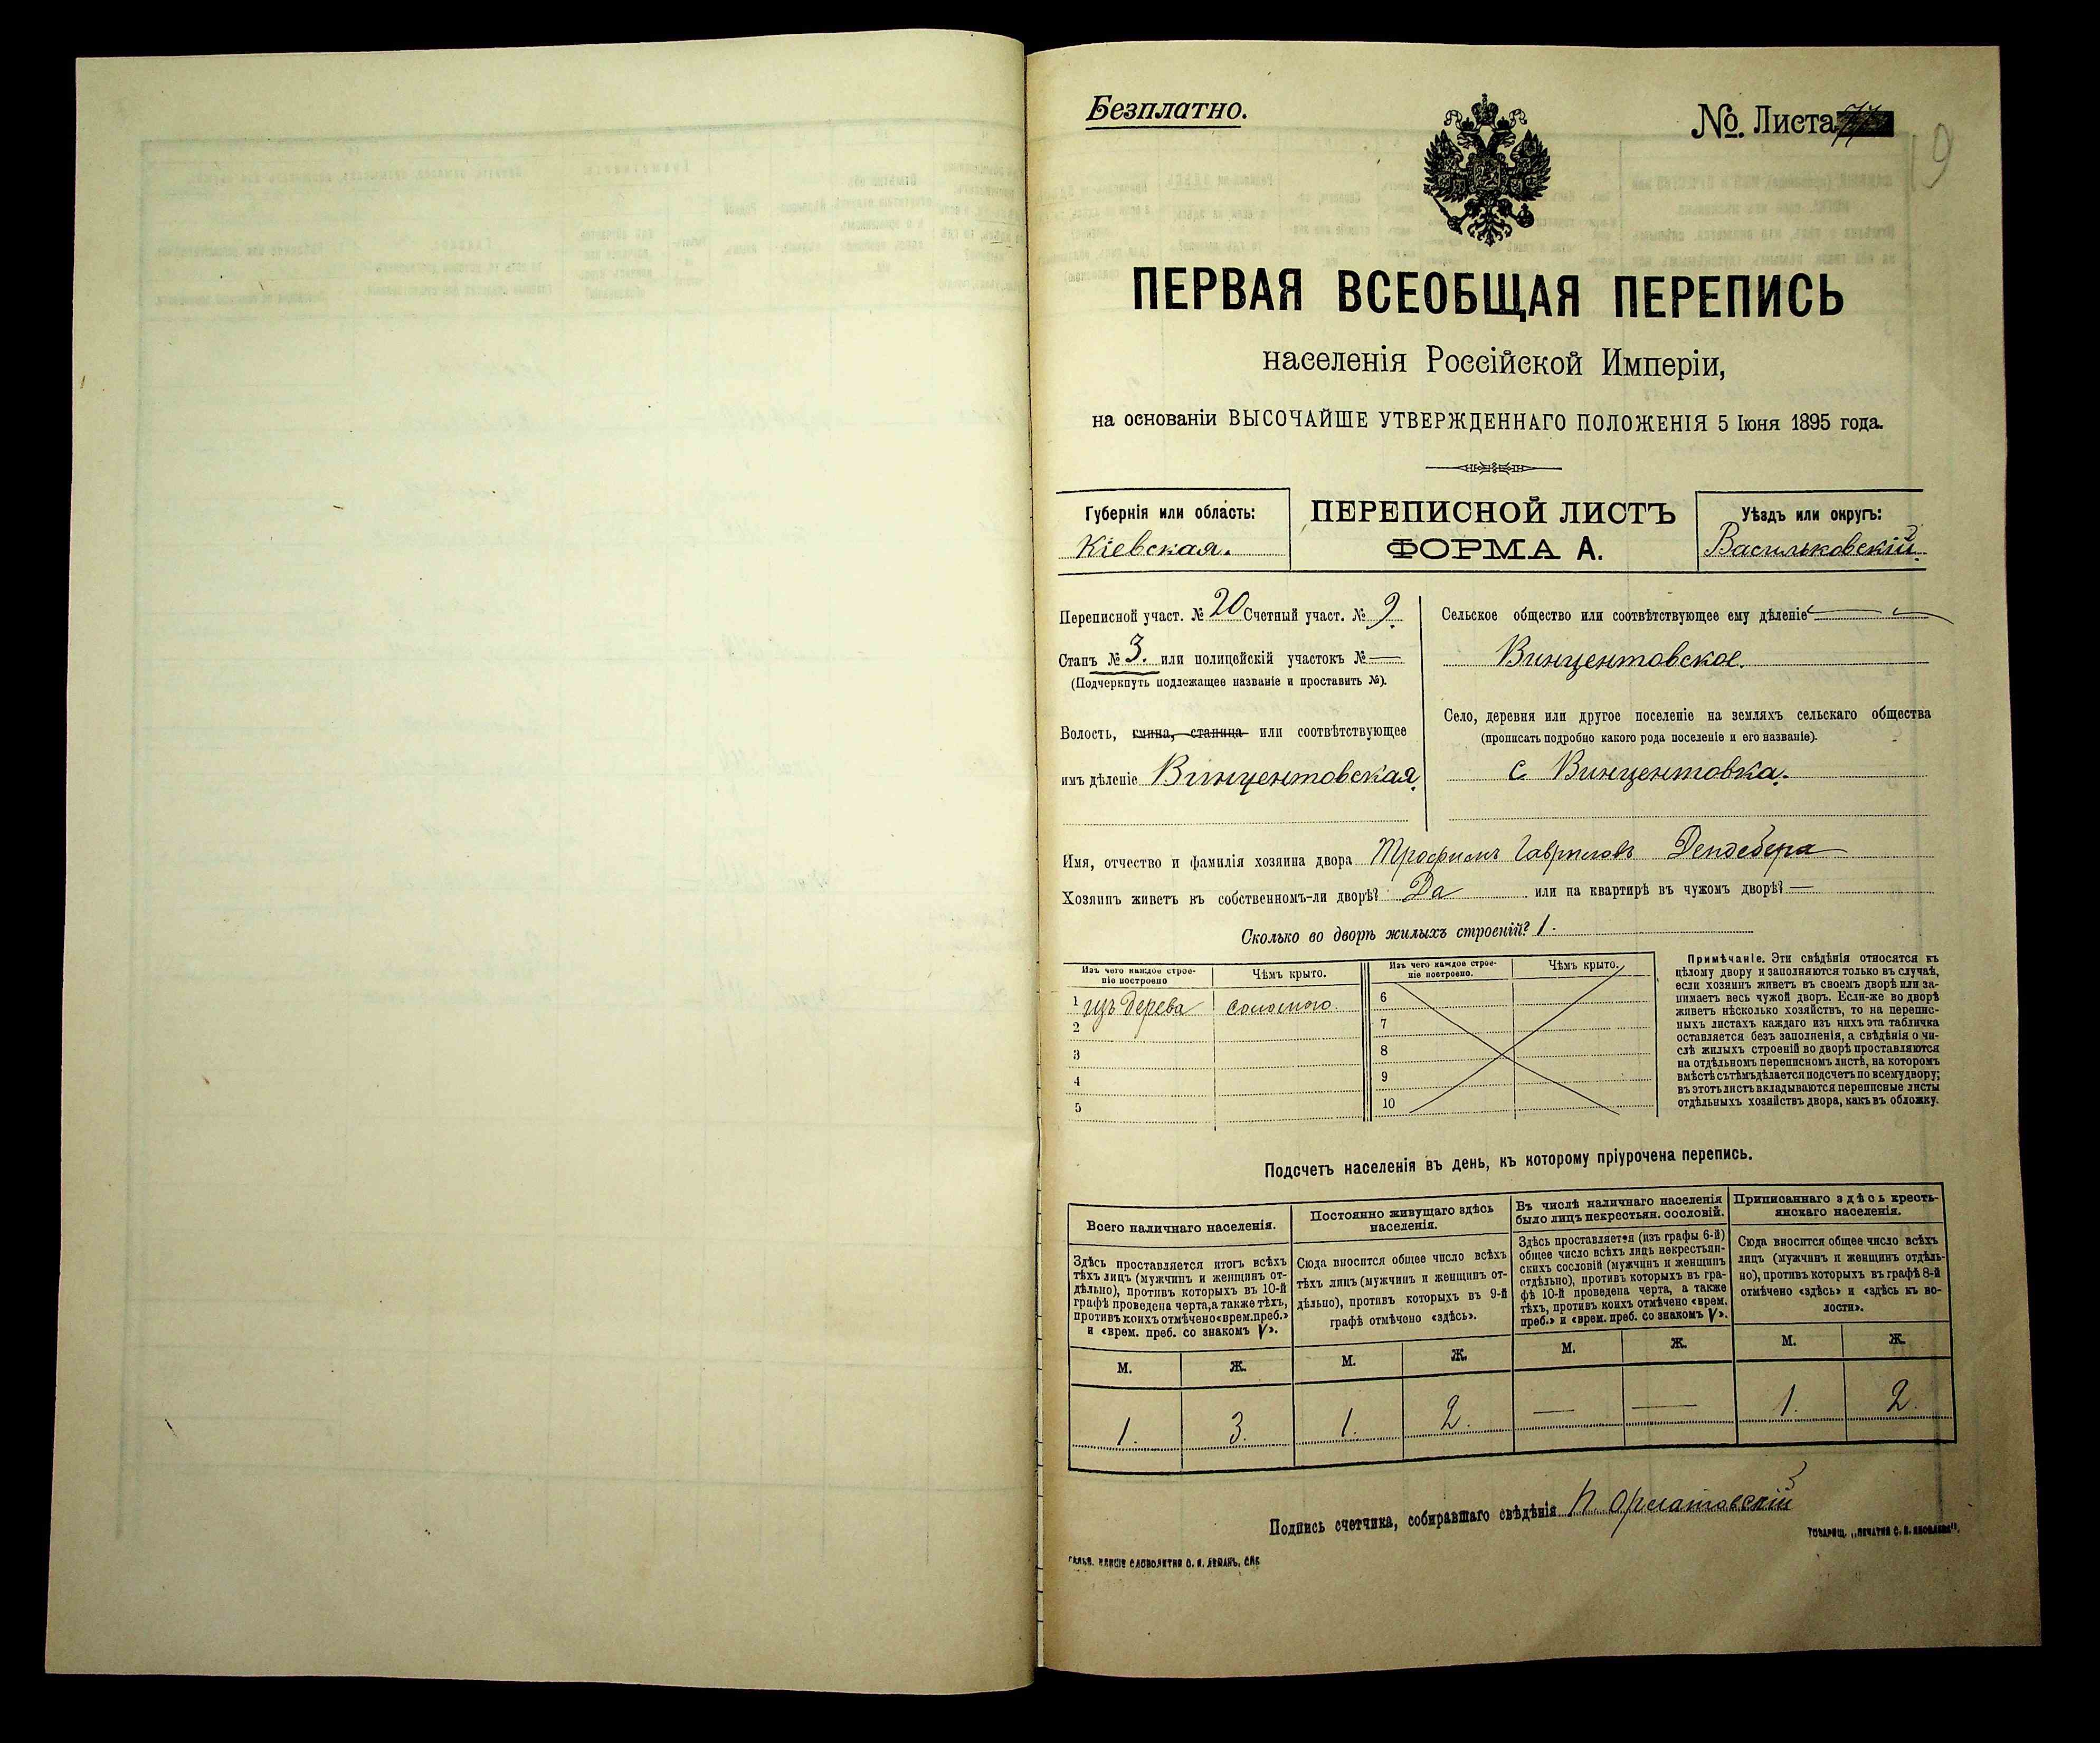 Безплатно.
№. Листа
19
ПЕРВАЯ ВСЕОБЩАЯ ПЕРЕПИСЬ
населенія Россійской Имперіи,
на основаніи ВЫСОЧАЙШЕ УТВЕРЖДЕННАГО ПОЛОЖЕНІЯ 5 Іюня 1895 года.
Губернія или область:
Кіевская.
ПЕРЕПИСНОЙ ЛИСТЪ
ФОРМА А.
Уѣздъ или округъ:
Васильковскій.
Переписной участ. № 20 Счетный участ. № 9.
Станъ № 3. или полицейскій участокъ № —
(Подчеркнуть подлежащее названіе и проставить №).
Волость, гмина, станица или соотвѣтствующее
имъ дѣленіе Винцентовская
Сельское общество или соотвѣтствующее ему дѣленіе
Винцентовское.
Село, деревня или другое поселеніе на земляхъ сельскаго общества
(прописать подробно какого рода поселеніе и его названіе).
с Винцентовка.
Имя, отчество и фамилія хозяина двора Трофимъ Гавриловъ Дендебера
Хозяинъ живетъ въ собственномъ-ли дворѣ? Да или на квартирѣ въ чужомъ дворѣ? —
Сколько во дворѣ жилыхъ строеній? 1.
Изъ чего каждое строе-
ніе построено
Чѣмъ крыто.
Изъ чего каждое строе-
ніе построено.
Чѣмъ крыто.
1 изъ дерева соломою
2
3
4
5
6
7
8
9
10
Примѣчаніе. Эти свѣдѣнія относятся къ
цѣлому двору и заполняются только въ случаѣ,
если хозяинъ живетъ въ своемъ дворѣ или за-
нимаетъ весь чужой дворъ. Если-же во дворѣ
живетъ нѣсколько хозяйствъ, то на перепис-
ныхъ листахъ каждаго изъ нихъ эта табличка
оставляется безъ заполненія, а свѣдѣнія о чи-
слѣ жилыхъ строеній во дворѣ проставляются
на отдѣльномъ переписномъ листѣ, на которомъ
вмѣстѣ съ тѣмъ дѣлается подсчетъ по всему двору;
въ этотъ листъ вкладываются переписные листы
отдѣльныхъ хозяйствъ двора, какъ въ обложку.
Подсчетъ населенія въ день, къ которому пріурочена перепись.
Всего наличнаго населенія.
Здѣсь проставляется итогъ всѣхъ
тѣхъ лицъ (мужчинъ и женщинъ от-
дѣльно), противъ которыхъ въ 10-й
графѣ проведена черта, а также тѣхъ,
противъ коихъ отмѣчено «врем. преб.»
и «врем. преб. со знакомъ V».
Постоянно живущаго здѣсь
населенія.
Сюда вносится общее число всѣхъ
тѣхъ лицъ (мужчинъ и женщинъ от-
дѣльно), противъ которыхъ въ 9-й
графѣ отмѣчено «здѣсь».
Въ числѣ наличнаго населенія
было лицъ некрестьян. сословій.
Здѣсь проставляется (изъ графы 6-й)
общее число всѣхъ лицъ некрестьян-
скихъ сословій (мужчинъ и женщинъ
отдѣльно), противъ которыхъ въ гра-
фѣ 10-й проведена черта, а также
тѣхъ, противъ коихъ отмѣчено «врем.
преб.» и «врем. преб. со знакомъ V».
Приписаннаго здѣсь кресть-
янскаго населенія.
Сюда вносится общее число всѣхъ
лицъ (мужчинъ и женщинъ отдѣль-
но), противъ которыхъ въ графѣ 8-й
отмѣчено «здѣсь» и «здѣсь къ во-
лости».
М. Ж. М. Ж. М. Ж. М. Ж.
1. 3. 1. 2. — — 1. 2.
Подпись счетчика, собиравшаго свѣдѣнія
ТОВАРИЩ. „ПЕЧАТНЯ С. П. ЯКОВЛЕВА“.
ГАЛЬВ. КЛИШЕ СЛОВОЛИТНИ О. И. ЛЕМАНЪ, СПБ